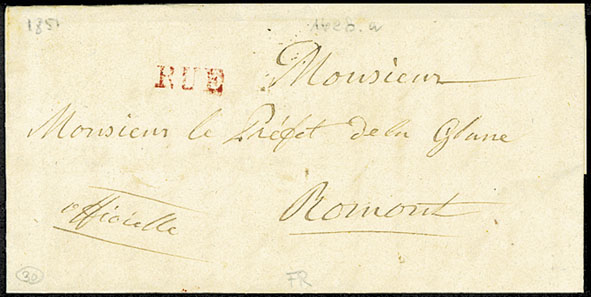 1851
RUE
Monsieur
Monsieur le Préfet de la Glane
Romont
officielle
30
FR